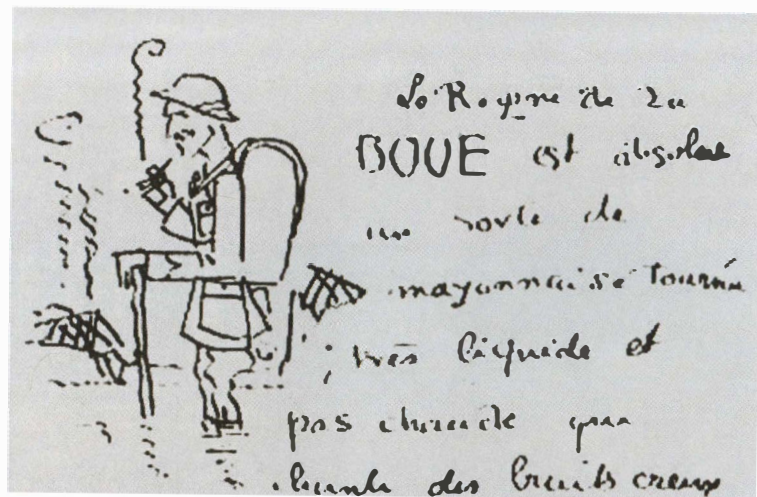 Le Royme de la
BOUE est absolue
une sorte de
mayonnaise tournée
très liquide et
pas chaude qui
des bruits creux